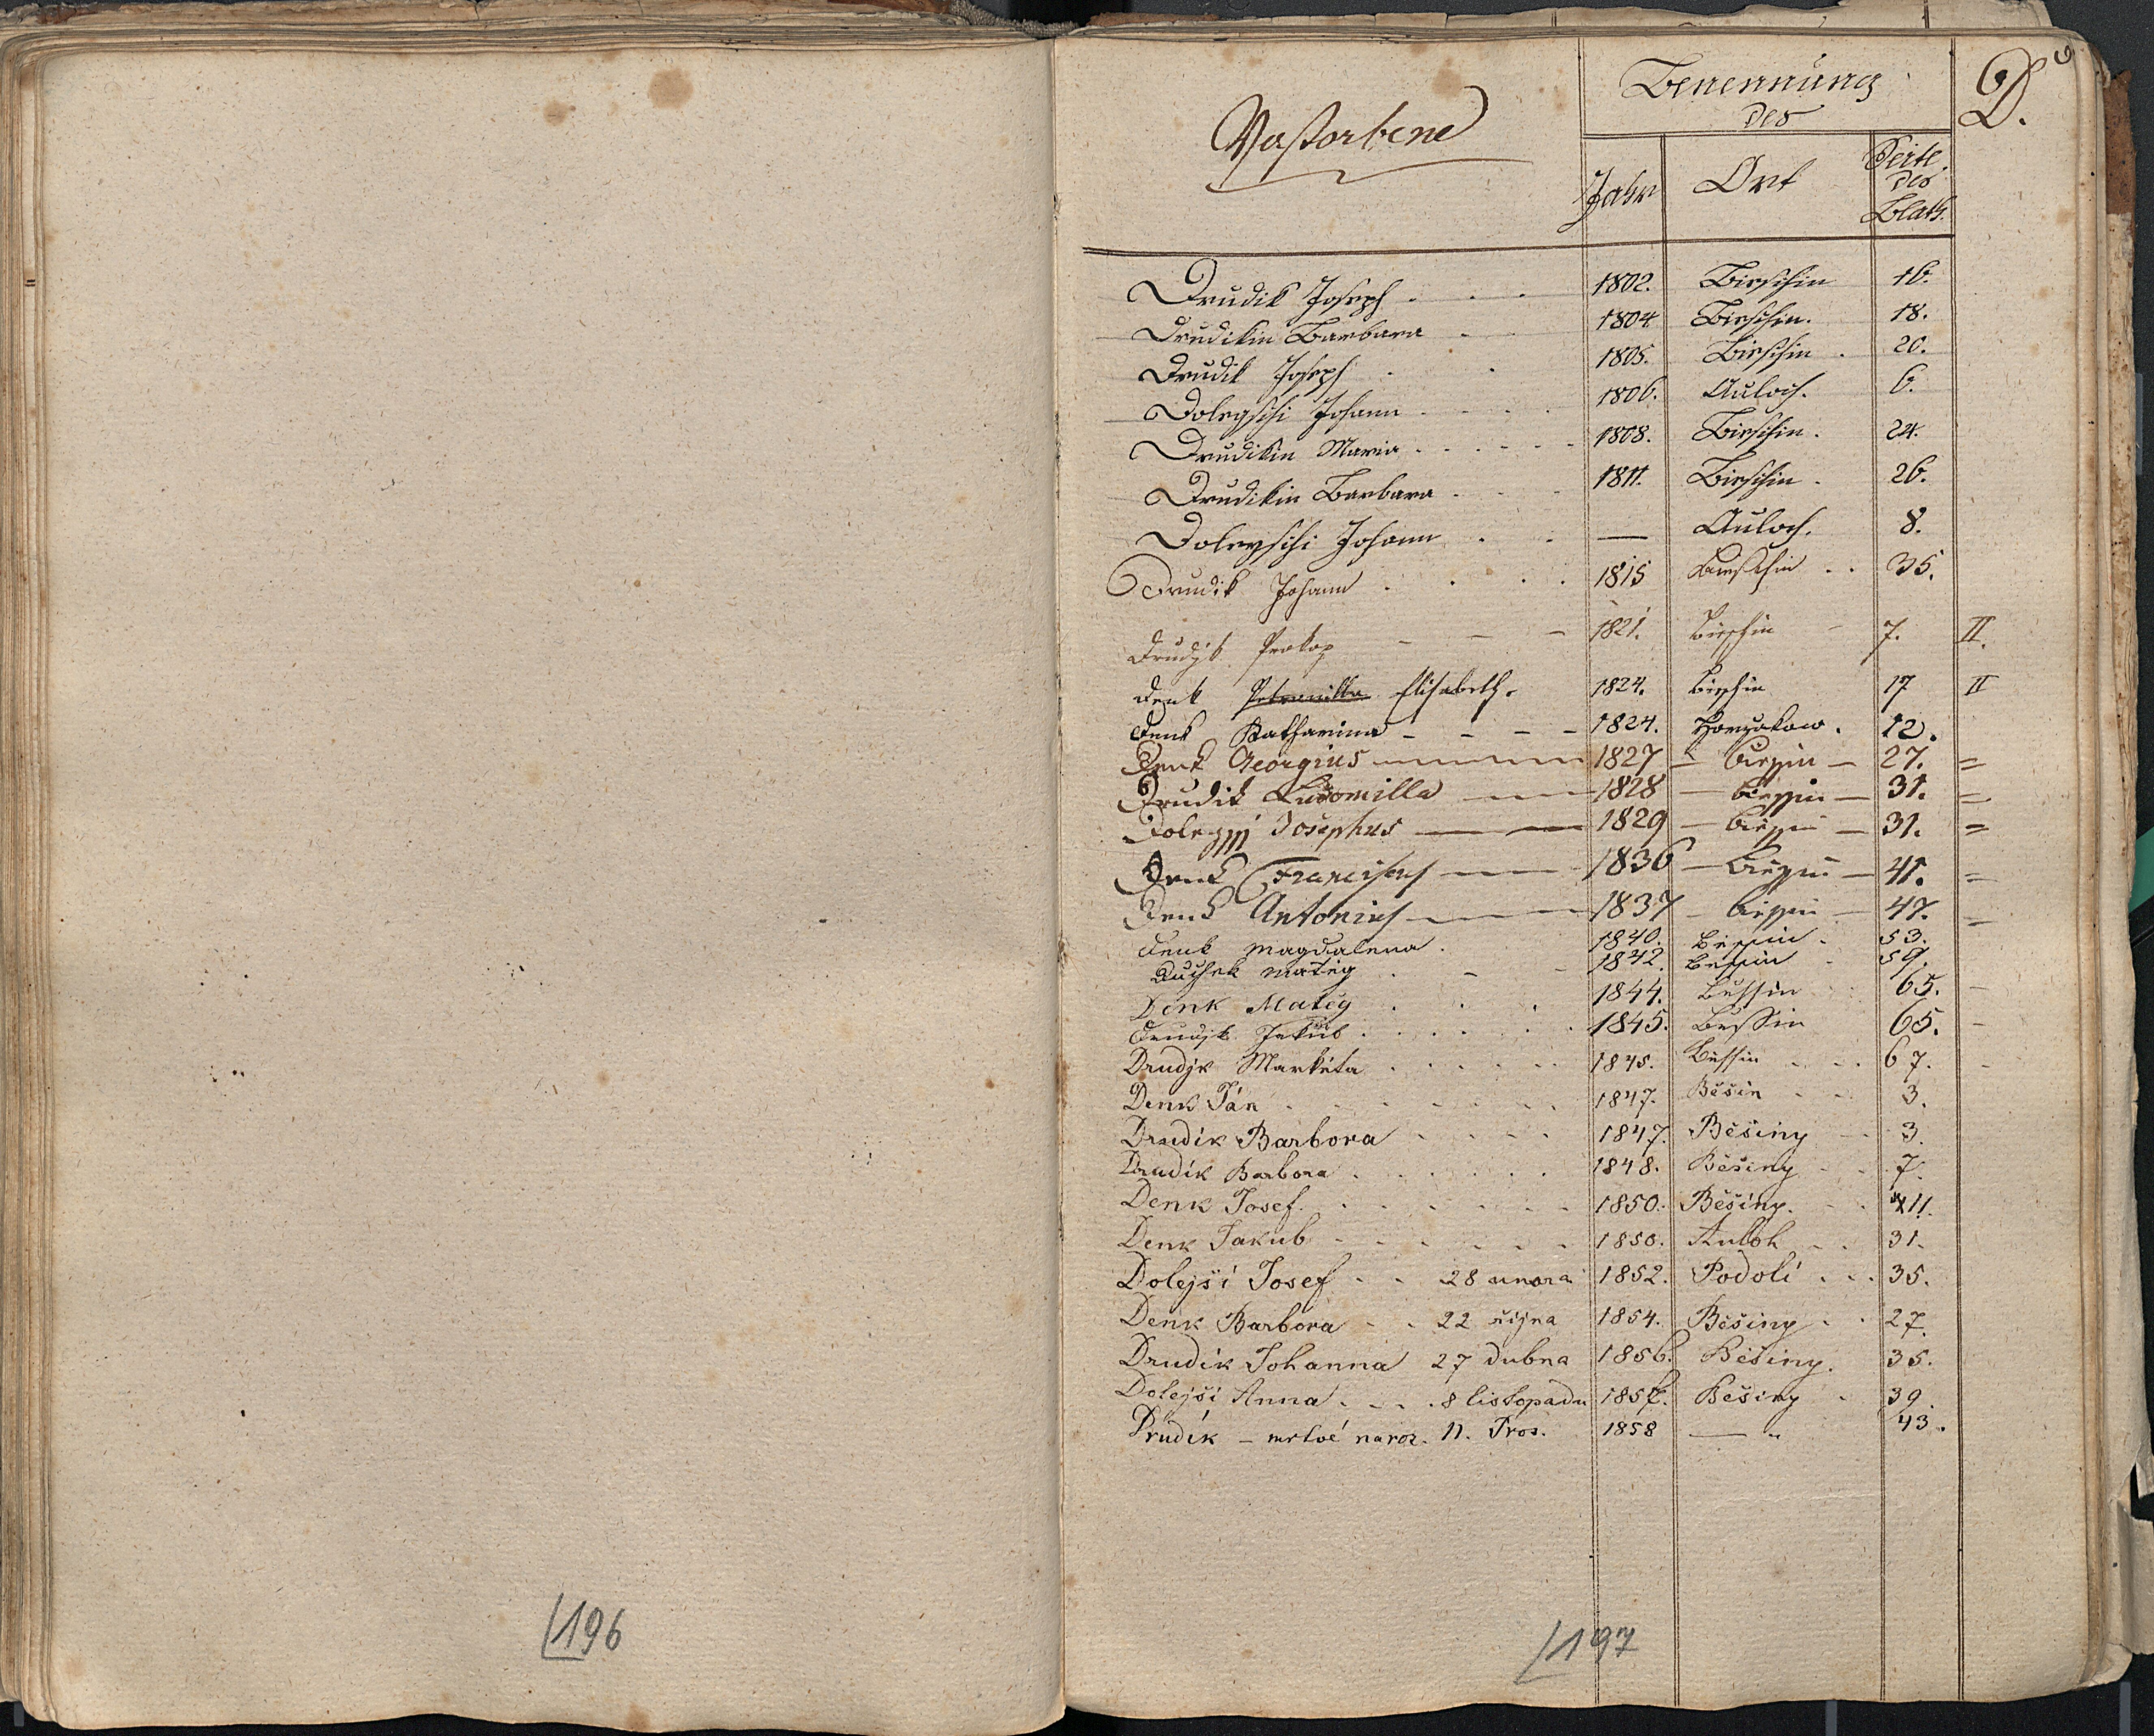 196
Verstorbene
Benennung
des
D.
Jahr
Ort
Seite
des
Blatts.
Drudik Joseph . . . 1802. Bieschin 16.
Drudikin Barbara . . 1804 Bieschin. 18.
Drudik Joseph . . 1805. Bieschin . 20.
Dolegschi Johann . . . . 1806. Auloch. 6.
Drudikin Maria . . . . . 1808. Bieschin. 24.
Drudikin Barbara . . . 1811. Bieschin . 26.
Doleyschi Johann . . — Auloch. 8.
Drudik Johann . . . . 1815 Bieschin . . 35.
Drudjk Prokop – – – 1821. Bieschin – 7. II.
Denk Petronilla Elisabeth. 1824. Bieschin 17 II
Denk Katharina – – – – 1824. 12.
Denk Georgius 1827 – – 27. =
Drudik Ludomilla 1828 – – 31. =
Josephus 1829 – – 31. =
Denk Franciscus 1836 – – 41. =
Denk Antonius 1837 – – 47. –
Denk Magdalena . 1840. . 53.
Duchek Matěg . – – 1842. . 59.
Denk Matěg . . . 1844. Biessin 65. –
Drudjk Jakub . . . . . . 1845. Bessin 65. –
Drudjk Markéta . . . . . . 1845. Biessin . . . 67. –
Denk Ján . . . . . . . . 1847. Běšin . . 3.
Drudík Barbora . . . . 1847. Běšiny . . 3.
Drudík Barbora . . . . . . 1848. Běšiny . . 7.
Denk Josef. . . . . . . . 1850. Běšiny. . . 11.
Denk Jakub . . . . . . . 1850. Auloh . . 31.
Dolejší Josef . . 28 unora 1852. Podolí . . . 35.
Denk Barbora . . 22 řijna 1854. Běšiny . . 27.
Drudík Johanna 27 dubna 1856. Běšiny. 35.
Dolejší Anna . . . . 8 listopadu 1857. Běšiny . 39.
Drudík – mrtvé naroz. 11. Pros. 1858 — „ 43.
197